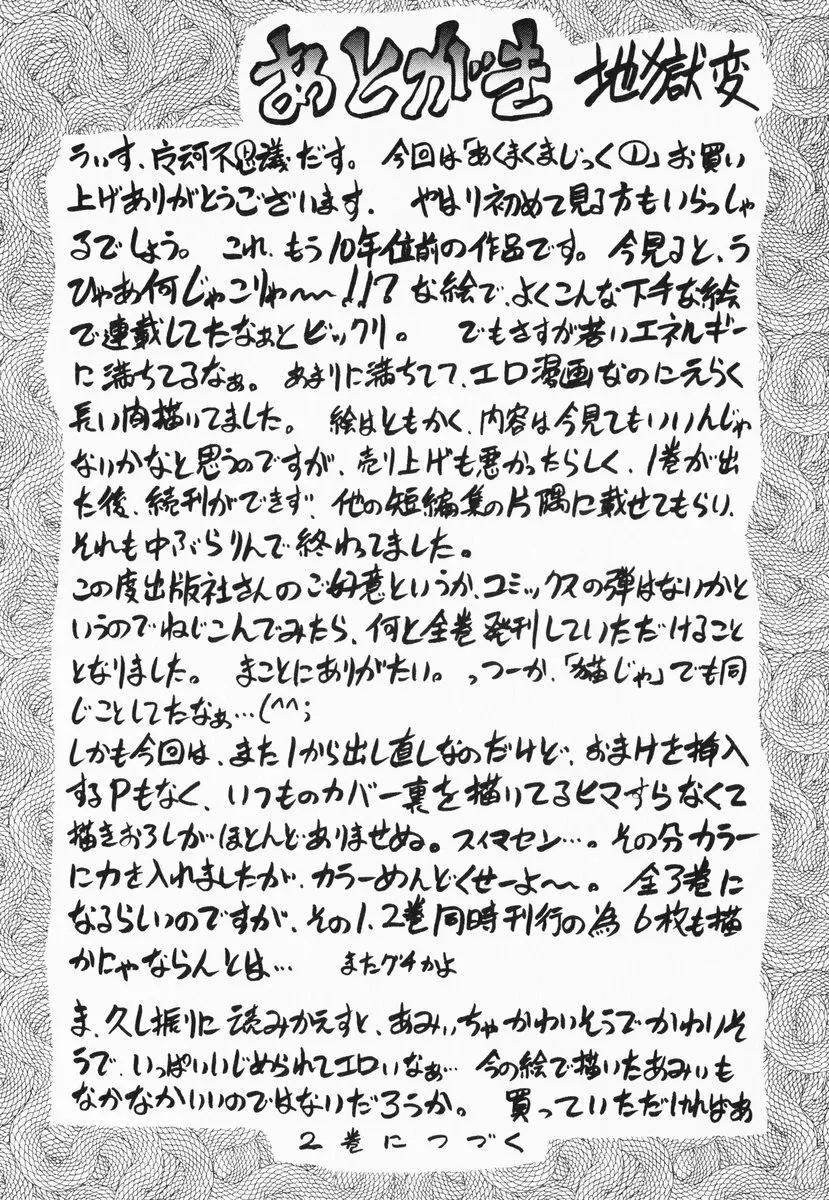 あとがき 地獄変
うぃす、白河不思議だす。 今回は「あくまくまじっく①」お買い
上げありがとうございます。 やはり初めて見る方もいらっしゃ
るでしょう。 これ、もう10年位前の作品です。今見ると、う
ひゃあ何じゃこりゃ〜〜!!? な絵で、よくこんな下手な絵
で連載してたなぁとビックリ。 でもさすが若いエネルギー
に満ちてるなぁ。 あまりに満ちてて、エロ漫画なのにえらく
長い間描いてました。 絵はともかく、内容は今見てもいいんじゃ
ないかなと思うのですが、売り上げも悪かったらしく、1巻が出
た後、続刊ができず、他の短編集の片隅に載せてもらい、
それも中ぶらりんで終わってました。
この度出版社さんのご好意というか、コミックスの弾はないかと
いうのでねじこんでみたら、何と全巻発刊していただけること
となりました。 まことにありがたい。 っつーか、「猫じゃ」でも同
じことしてたなぁ…(^^;
しかも今回は、また1から出し直しなのだけど、おまけを挿入
するPもなく、いつものカバー裏を描いてるヒマすらなくて
描きおろしがほとんどありませぬ。スイマセン…。その分カラー
に力を入れましたが、カラーめんどくせーよ〜〜。 全3巻に
なるらしいのですが、その1、2巻同時刊行の為 6枚も描
かにゃならんとは… またグチかよ
ま、久し振りに読みかえすと、あみぃちゃかわいそうでかわいそ
うで、いっぱいいじめられてエロいなぁ… 今の絵で描いたあみぃも
なかなかいいのではないだろうか。 買っていただければあ
2巻につづく